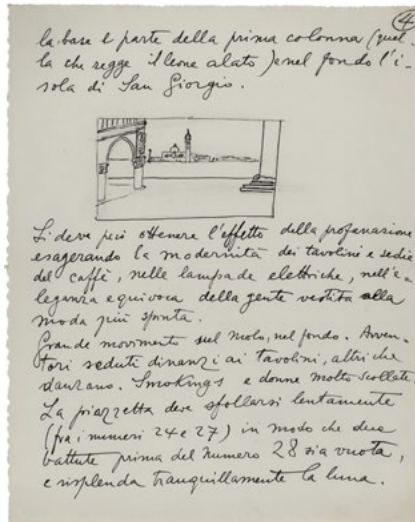 4
la base e parte della prima colonna (quel-
la che regge il leone alato) e nel fondo l'i-
sola di San Giorgio.
Si deve più ottenere l'effetto della profanazione
esagerando la modernità dei tavolini e sedie
del caffè, nelle lampade elettriche, nell'e-
leganza equivoca della gente vestita alla
moda più spinta.
Grande movimento sul Molo, nel fondo. Avven-
tori seduti dinanzi ai tavolini, altri che
danzano. Smokings e donne molto scollate.
La piazzetta deve sfollarsi lentamente
(fra i numeri 24 e 27) in modo che due
battute prima del numero 28 sia vuota,
e risplenda tranquillamente la luna.